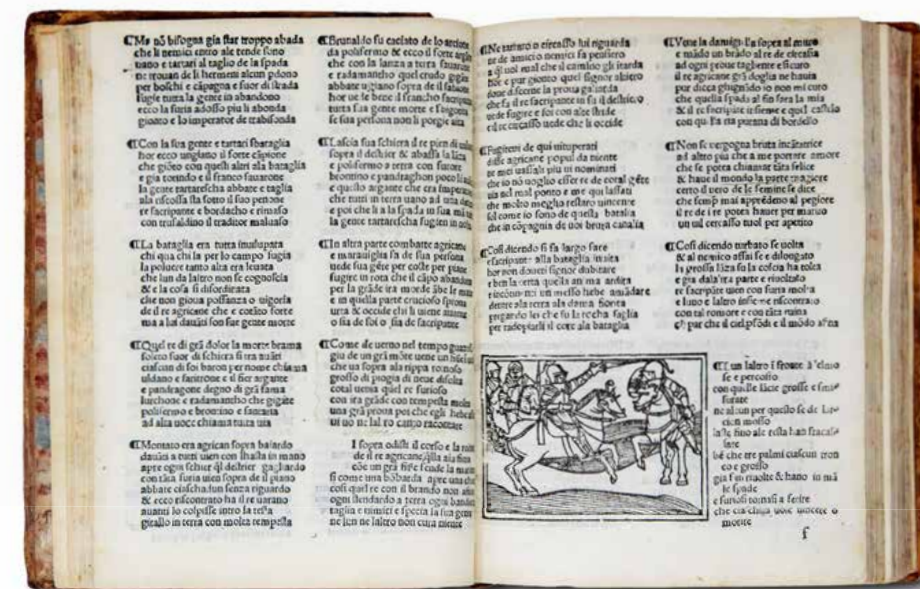 ¶Ma nō bisogna gia star troppo abada
che li nemici entro ale tende sono
uano e tartari al taglio de la spada
ne trouan de li hermeni alcun pdono
per boschi e cāpagna e fuor di strada
fugie tutta la gente in abandono
ecco la furia adosso piu li abonda
gionto e lo imperator de trabisonda
¶Con la sua gente e tartari sbaraglia
hor ecco ungiano il forte cāpione
che giōto con quelli altri ala bataglia
e gia torindo e il franco sauarone
la gente tartarescha abbate e taglia
ala riscossa sta sotto il suo penone
re sacripante e bordacho e rimaso
con trufaldino il traditor maluaso
¶La bataglia era tutta inuilupata
chi qua chi la per lo campo fugia
la poluere tanto alta era leuata
che lun da laltro non se cognoscia
& e la cosa si disordinata
che non gioua possanza o uigoria
de il re agricane che e cotāto forte
ma a lui dauāti son sue gente morte
¶Quel re di grā dolor la morte brama
soleto fuor di schiera si tra auāti
ciascun di soi baron per nome chiama
uldano e saritrone e il fier argante
e pandragone degno di grā fama
lurchone e radamancho che gigāte
polifermo e brontino e santaria
ad alta uoce chiama tutta uia
¶Montato era agrican sopra baiardo
dauāti a tutti uien con lhasta in mano
apre ogni schier ql destrier gagliardo
con tāta furia uien sopra de il piano
abbate ciaschadun senza riguardo
& ecco riscontrato ha il re uarano
auanti lo colpisse intro la testa
gitallo in terra con molta tempesta
¶Brunaldo fu caciato de lo arcione
da polifermo & ecco il forte argante
che con la lanza a terra sauarone
e radamancho quel crudo gigante
abbate ungiano sopra de il sabione
hor ue se bene il francho sacripante
tutta sua gente morte e sbigotita
se sua persona non li porgie aita
¶Lascia sua schiera il re pien di ualore
sopra il destrier & abassa la lāza
polifermo a terra con furore
brontino e pandraghon poco li auanza
e quello argante che era superiore
che tutti in terra uano ad una danza
e poi che li a la spada in sua mā
la gente tartarescha fugien in
¶In altra parte combatte agricane
e marauiglia fa de sua persona
uede sua gēte per coste per piane
fugire in rota che il cāpo abandona
per la grāde ira morde ābe le mane
e in quella parte crucioso sprona
urta & occide chi li uiene auante
o sia de soi o sia de sacripante
¶Come de uerno nel tempo guazoso
giu de un grā mōte uene un fiume
che ua sopra ala rippa ruinoso
grosso di piogia di neue disolta
cotal uenia quel re furioso
con ira grāde con tempesta molta
una grā proua poi che egli hebe
ui uo ne lal ro canto raccontare
I sopra odisti il corso e la ruina
de il re agricane qlla aia fina
cōe un grā fiūe scende la marina
si come una bōbarda apre una
cosi quel re con il brando non
ogni stendardo a terra ogni bandiera
taglia e nimici e specia la sua gente
ne lun ne laltro non cura niente
¶Ne tartaro o circasso lui riguarda
ne de amici o nemici fa pensiero
a ql uol mal che il camino gli itarda
hor e pur gionto quel signor altiero
doue discerne la proua gaiarda
che fa il re sacripante in su il destriero
uede fugire e soi con alte stride
e il re circasso uede che li occide
¶Fugitiui de qui uituperati
disse agricane popul da niente
ne miei uassali piu ui nominati
che io nō uoglio esser re de cotal gēte
uia nel mal ponto e me qui lassati
che molto meglio restaro uincente
sol come io sono de questa bataia
che in cōpagnia de uoi bruta canaia
¶Cosi dicendo si fa largo fare
e sacripante alla bataglia inuita
hor non doueti signor dubitare
e ben la certa quella anima ardita
e incōtinente un messo hebe amādare
dentro ala terra ala dama fiorita
pregando lei che su la rocha saglia
per radopiarli il core ala bataglia
¶Vene la damigella sopra al muro
e mādo un brādo al re de circasia
ad ogni proue tagliente e sicuro
il re agricane grā doglia ne hauia
pur dicea ghignādo io non mi curo
che quella spada al fin sera la mia
& il re sacripāte insieme e quel castello
con quella ria putana di bordello
¶Non se uergogna bruta incātatrice
ad altro piu che a me portare amore
che se potea chiamar tāta felice
& haue il mondo la parte magiore
certo il uero de le femine se dice
che semp mai apprēdeno al pegiore
il re de i re potea hauer per marito
un uil cercasso tuol per apetito
¶Cosi dicendo turbato se uolta
& al nemico assai se e dilongato
la grossa lāza su la coscia ha tolta
e gia dalaltra parte e riuoltato
re sacripāte uien con furia molta
e luno e laltro insieme riscontrato
con tal romore e con tāta ruina
ch par che il ciel pfōdi e il mōdo afina
¶Lun laltro i fronte a lelmo
se e percosso
con quelle lācie grosse e smisurate
ne alcun per questo se de larcion mosso
laste fino ale resta han fracassate
bē che tre palmi ciascun troncon e grosso
gia sun riuolte & hano in mā le spade
e furiosi tornasi a ferire
che ciaschun uole uincere o morire
f